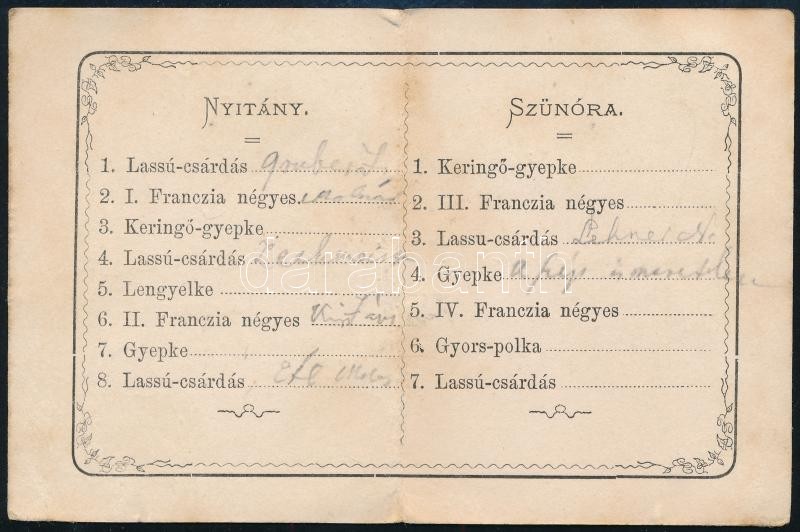 NYITÁNY.
1. Lassú-csárdás
2. I. Franczia négyes
3. Keringő-gyepke
4. Lassú-csárdás
5. Lengyelke
6. II. Franczia négyes
7. Gyepke
8. Lassú-csárdás
SZÜNÓRA.
1. Keringő-gyepke
2. III. Franczia négyes
3. Lassu-csárdás
4. Gyepke
5. IV. Franczia négyes
6. Gyors-polka
7. Lassú-csárdás
darabanth